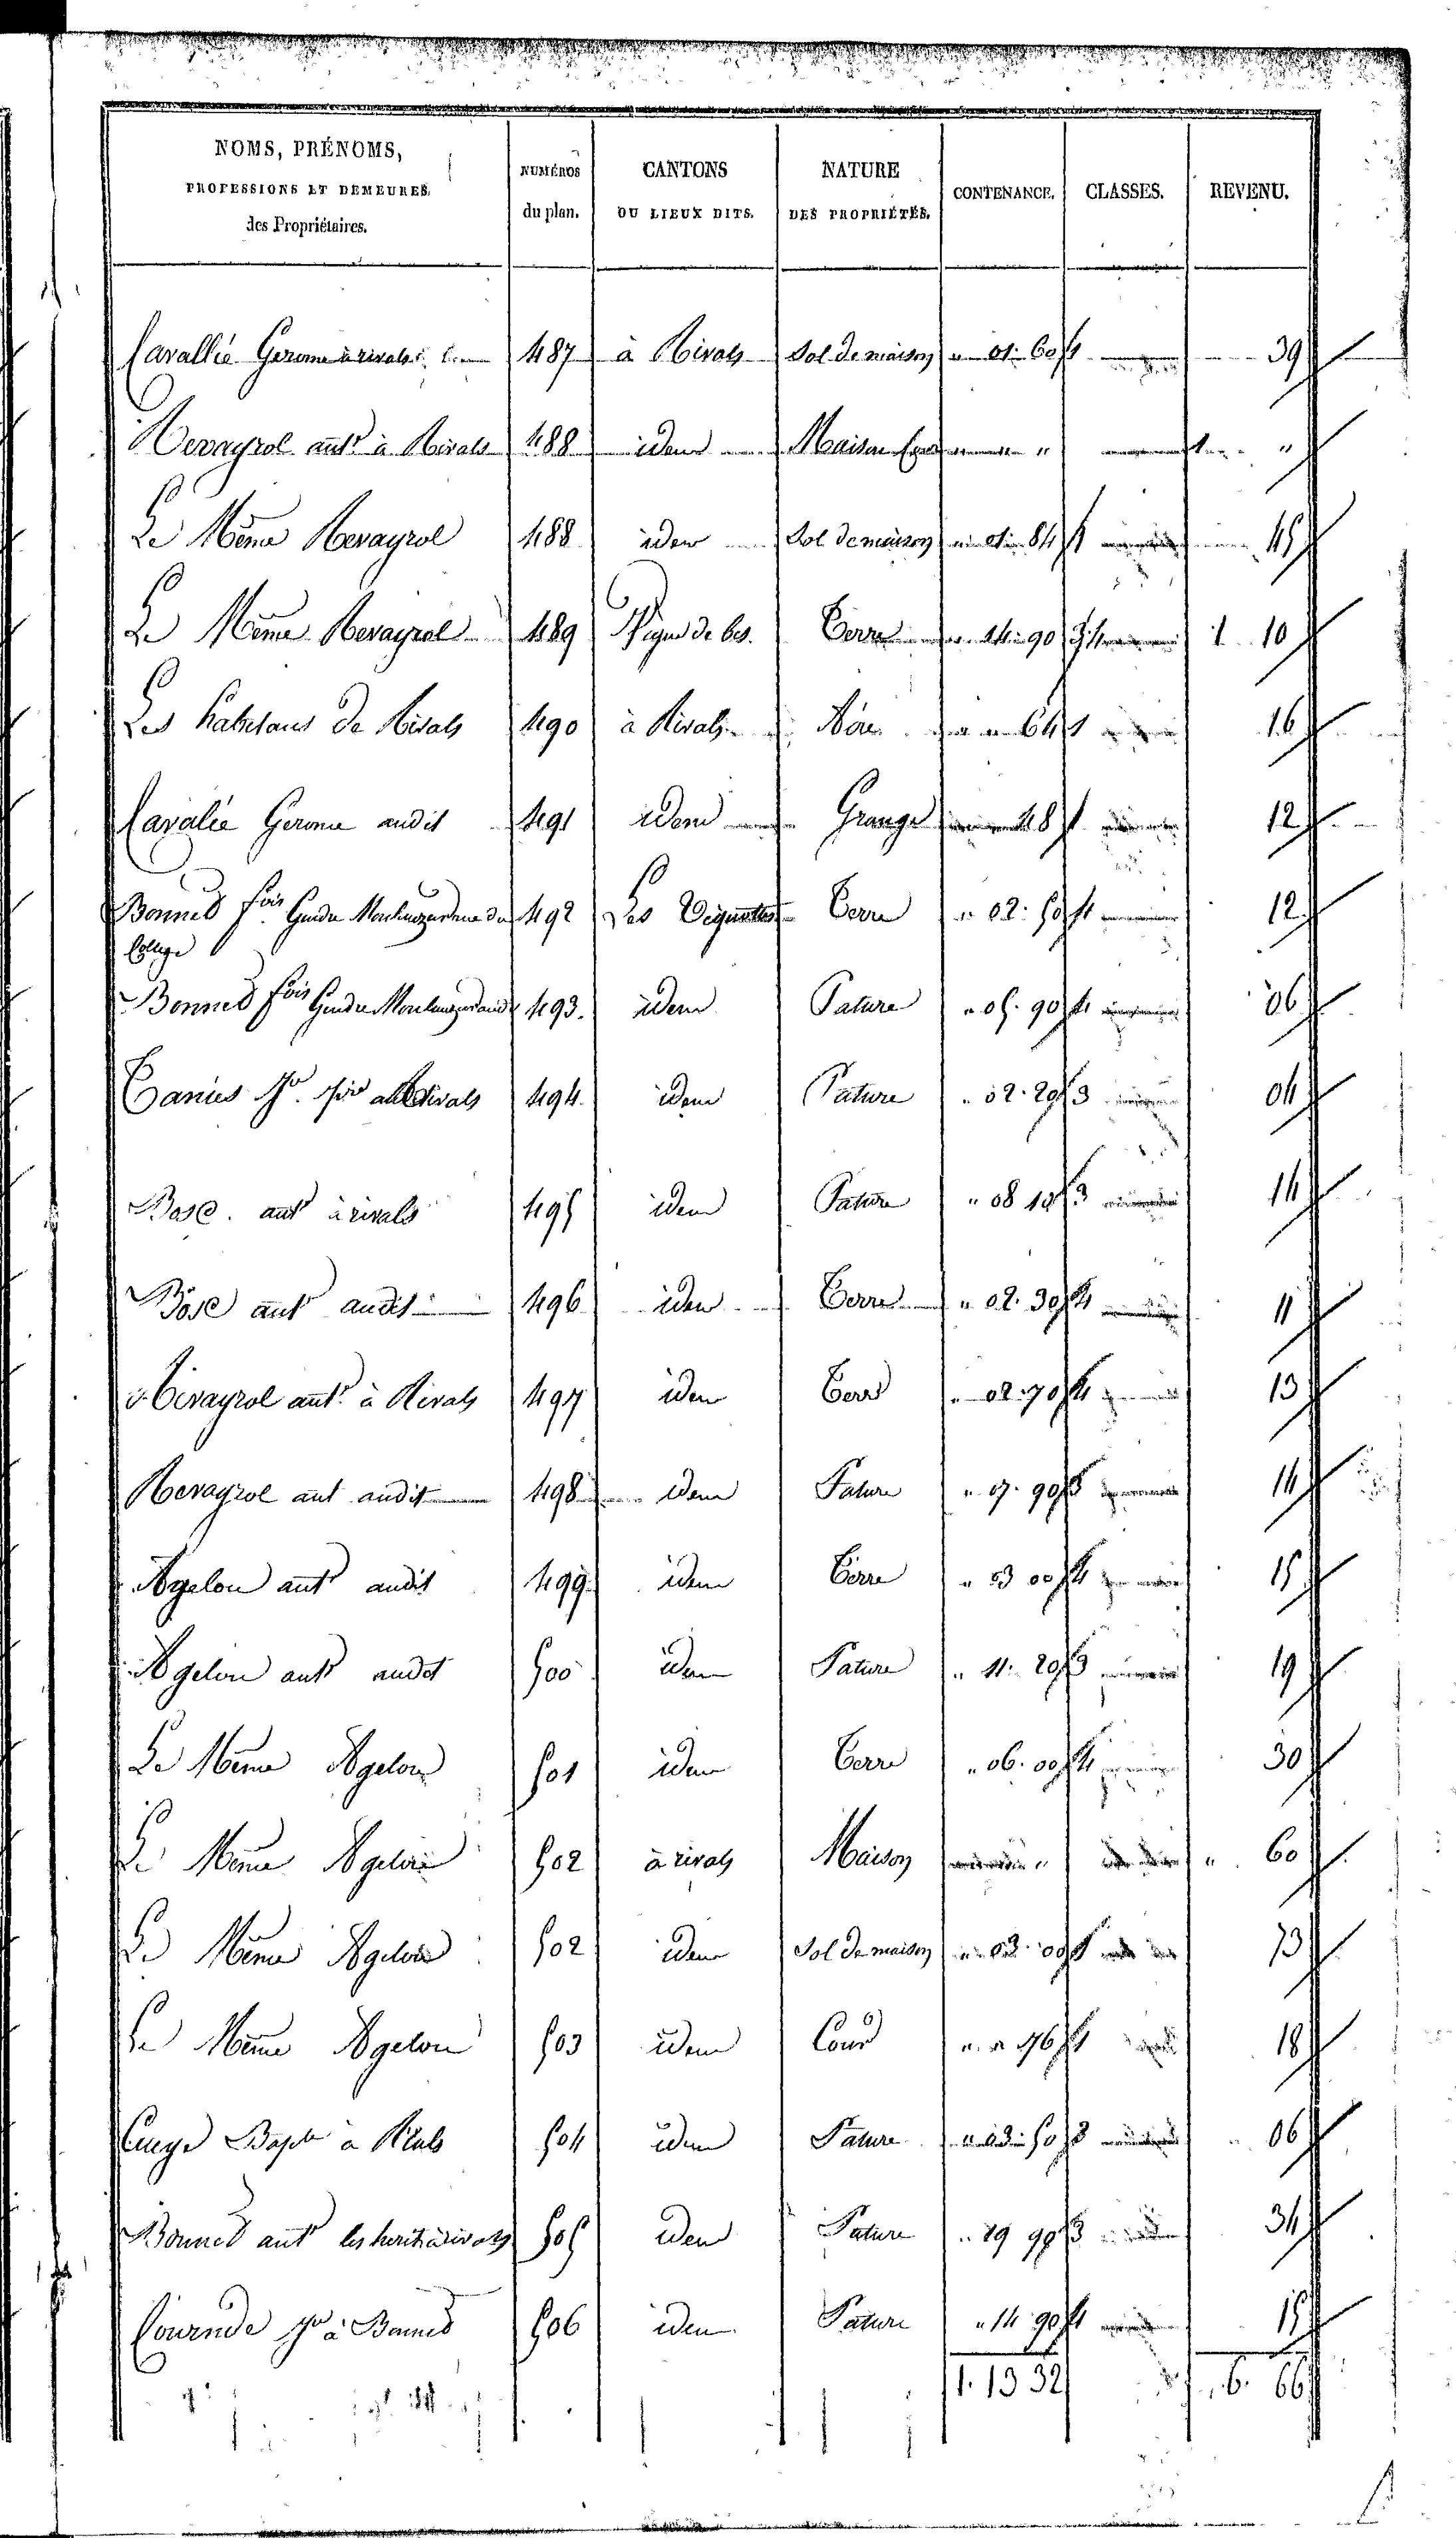 NOMS, PRÉNOMS, PROFESSIONS ET DEMEURES des Propriétaires. NUMÉROS du plan. CANTONS OU LIEUX DITS. NATURE DES PROPRIÉTÉS. CONTENANCE. CLASSES. REVENU.
Cavallié Gerome à rivals 487 à Rivals Sol de maison " 01 60 1 39
Revayrol ant à Rivals 488 idem Maison " "
Le Même Revayrol 488 idem Sol de maison " 01 84 1 45
Le Même Revayrol 489 Terre " 90 1 10
Les habitans de Rivals 490 à Rivals " " 64 1 16
Cavalié Gerome audit 491 idem Grange 48 1 12
Bonnet fois Gendre du 492 Les Vignettes Terre " 02 50 4 12
College
Bonnet fois Gendre 493 idem Pature " 05 90 4 06
494 idem Pature " 02 20 3 04
Bosc ant à rivals 495 idem Pature " 08 10 3 14
Bosc ant audit 496 idem Terre " 02 30 4 11
Revayrol ant à Rivals 497 idem Terre " 02 70 4 13
Revayrol ant audit 498 idem Pature " 07 90 3 14
Agelou ant audit 499 idem Terre " 03 00 4 15
Agelou ant audit 500 idem Pature " 11 20 3 19
Le Même Agelou 501 idem Terre " 06 00 4 30
Le Même Agelou 502 à rivals Maison " " 60
Le Même Agelou 502 idem Sol de maison " 03 00 1 73
Le Même Agelou 503 idem Cour " " 76 1 18
Cuege Bapte à 504 idem Pature " 03 50 3 06
Bonnet ant les herit à rivals 505 idem Pature " 19 90 3 34
à Bonnet 506 idem Pature " 14 90 4 15
1. 13 32 6. 66